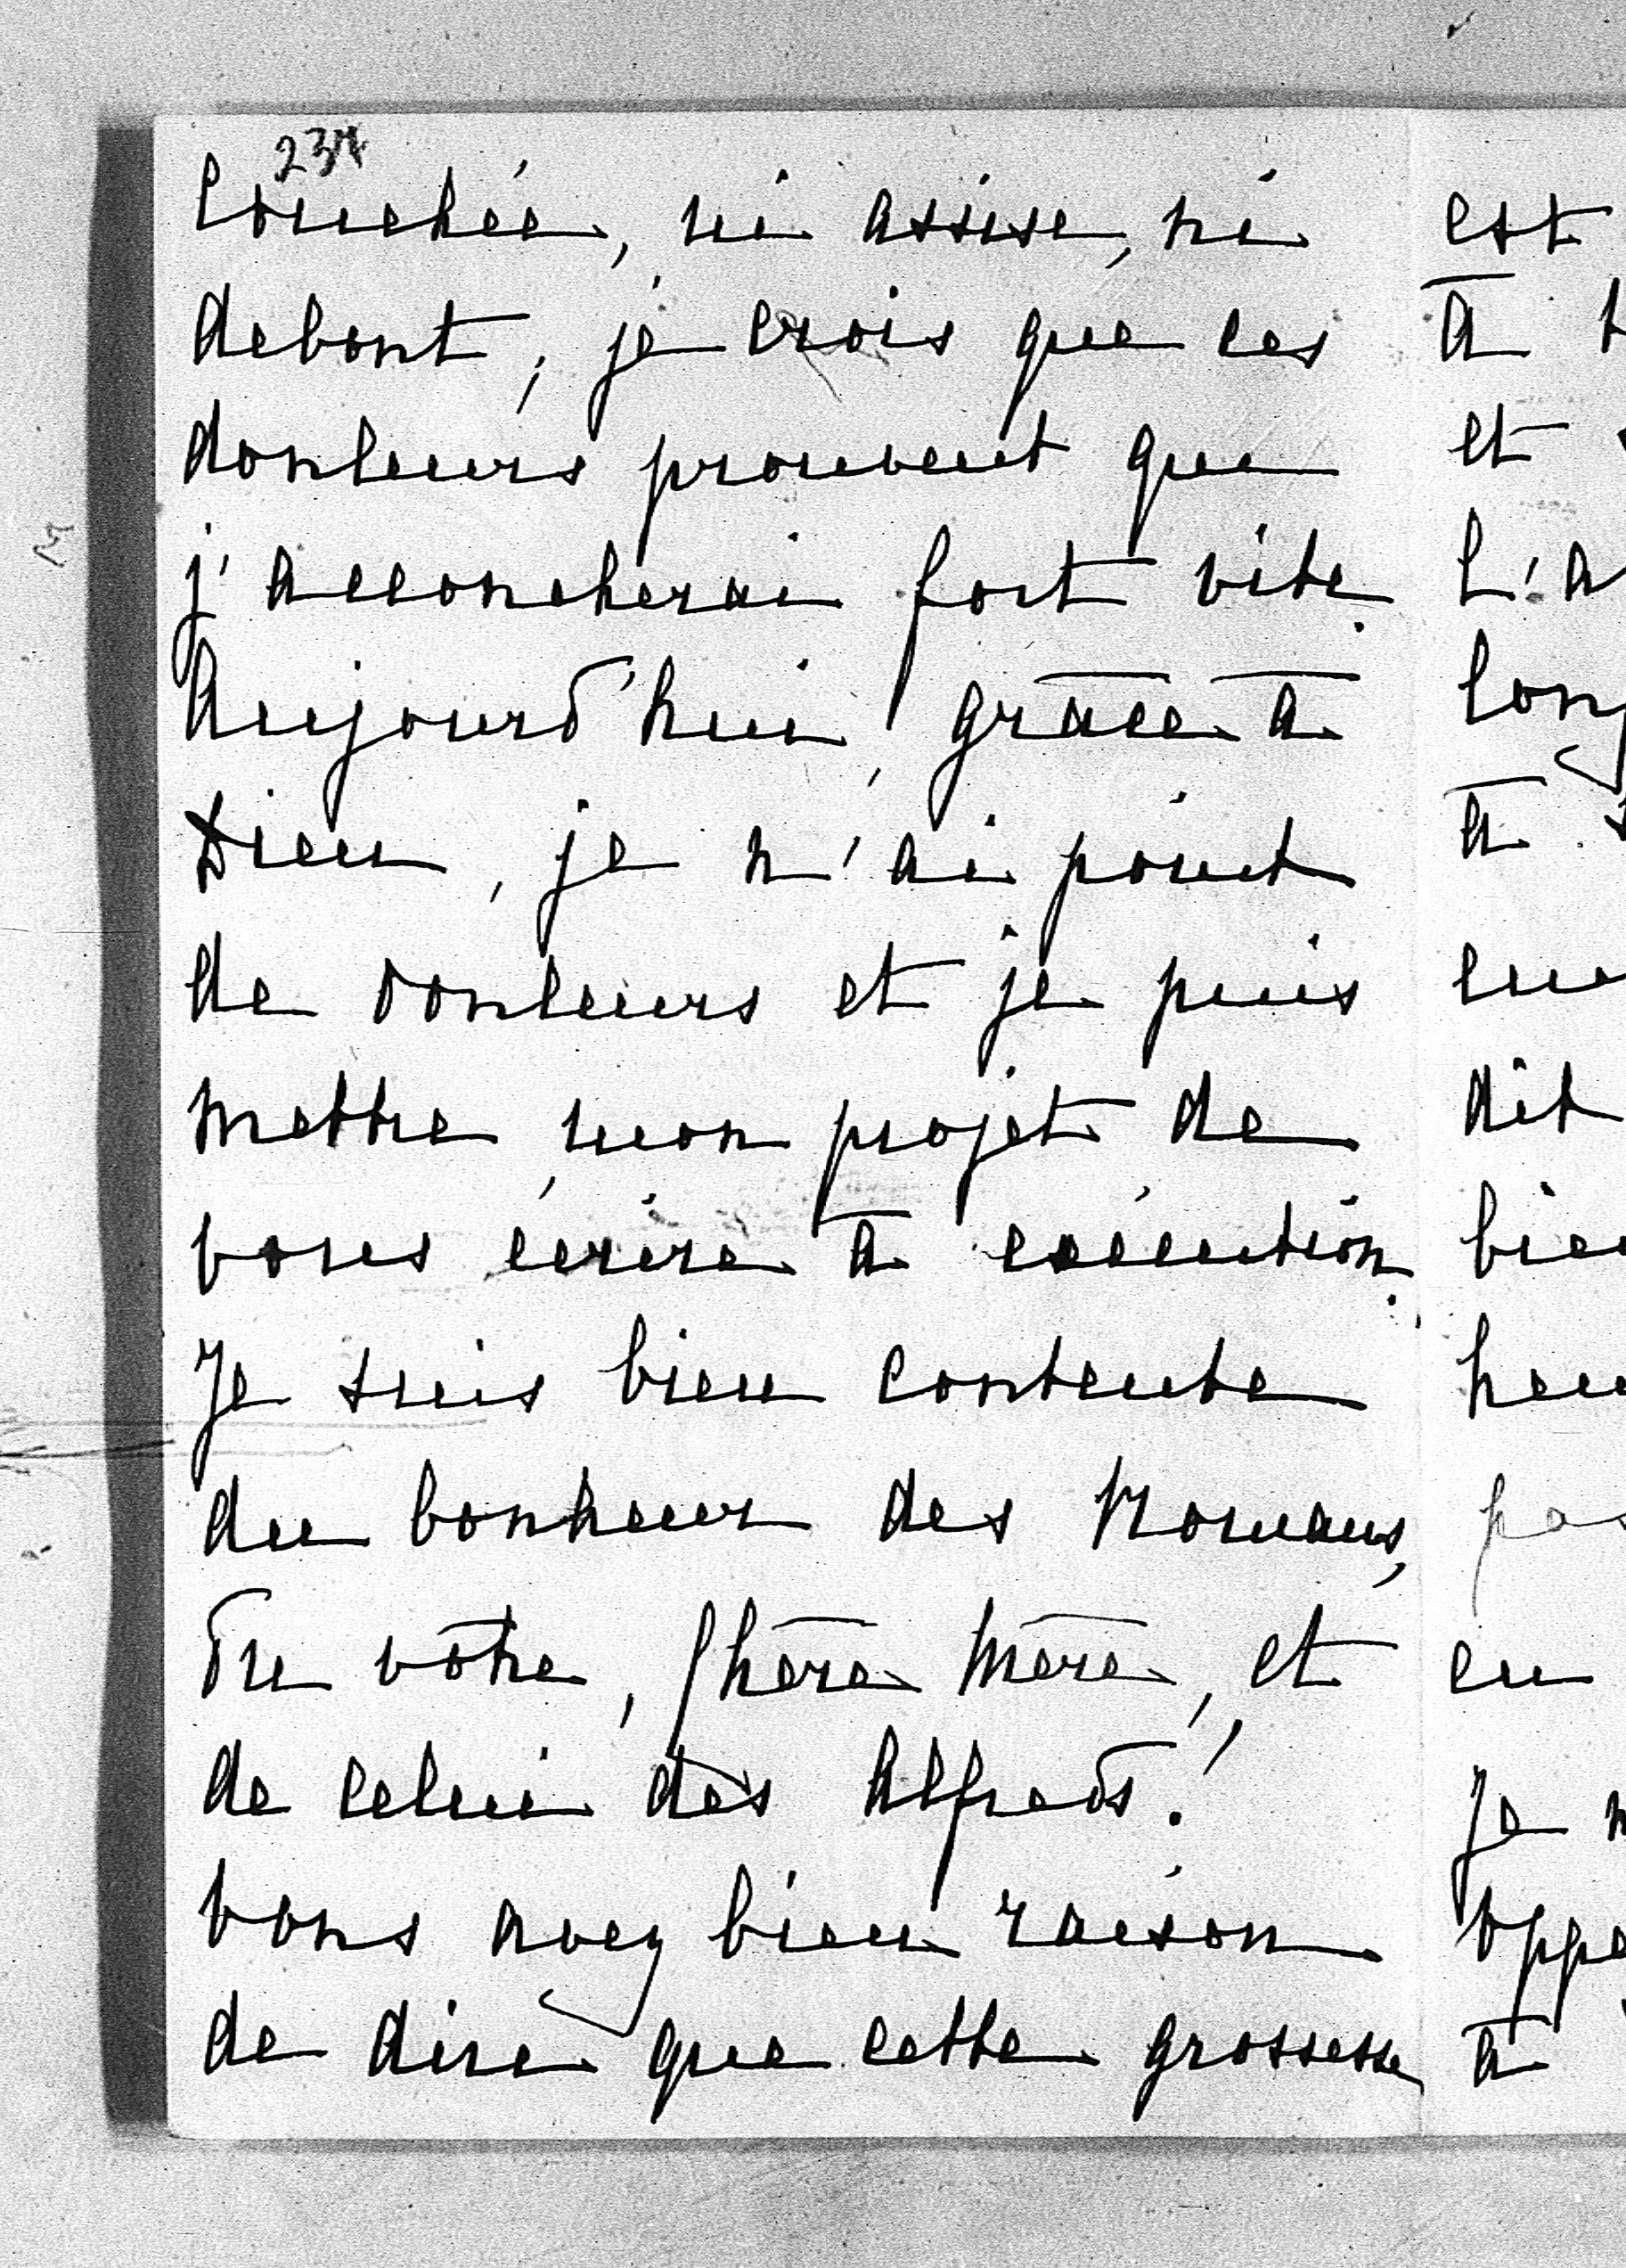 237
couchée, ni assise, ni
debout; je crois que ces
douleurs prouvent que
j'accoucherai fort vite.
Aujourd'hui, grâce à
Dieu, je n'ai point
de douleurs et je puis
mettre mon projet de
vous écrire à exécution.
Je suis bien contente
du bonheur des Romans,
du vôtre, chère Mère, et
de celui des Alfreds!
vous avez bien raison
de dire que cette grossesse
est
à
et
L'a
long
à
dit
bien
heu
pas
en
Je
oppo
à